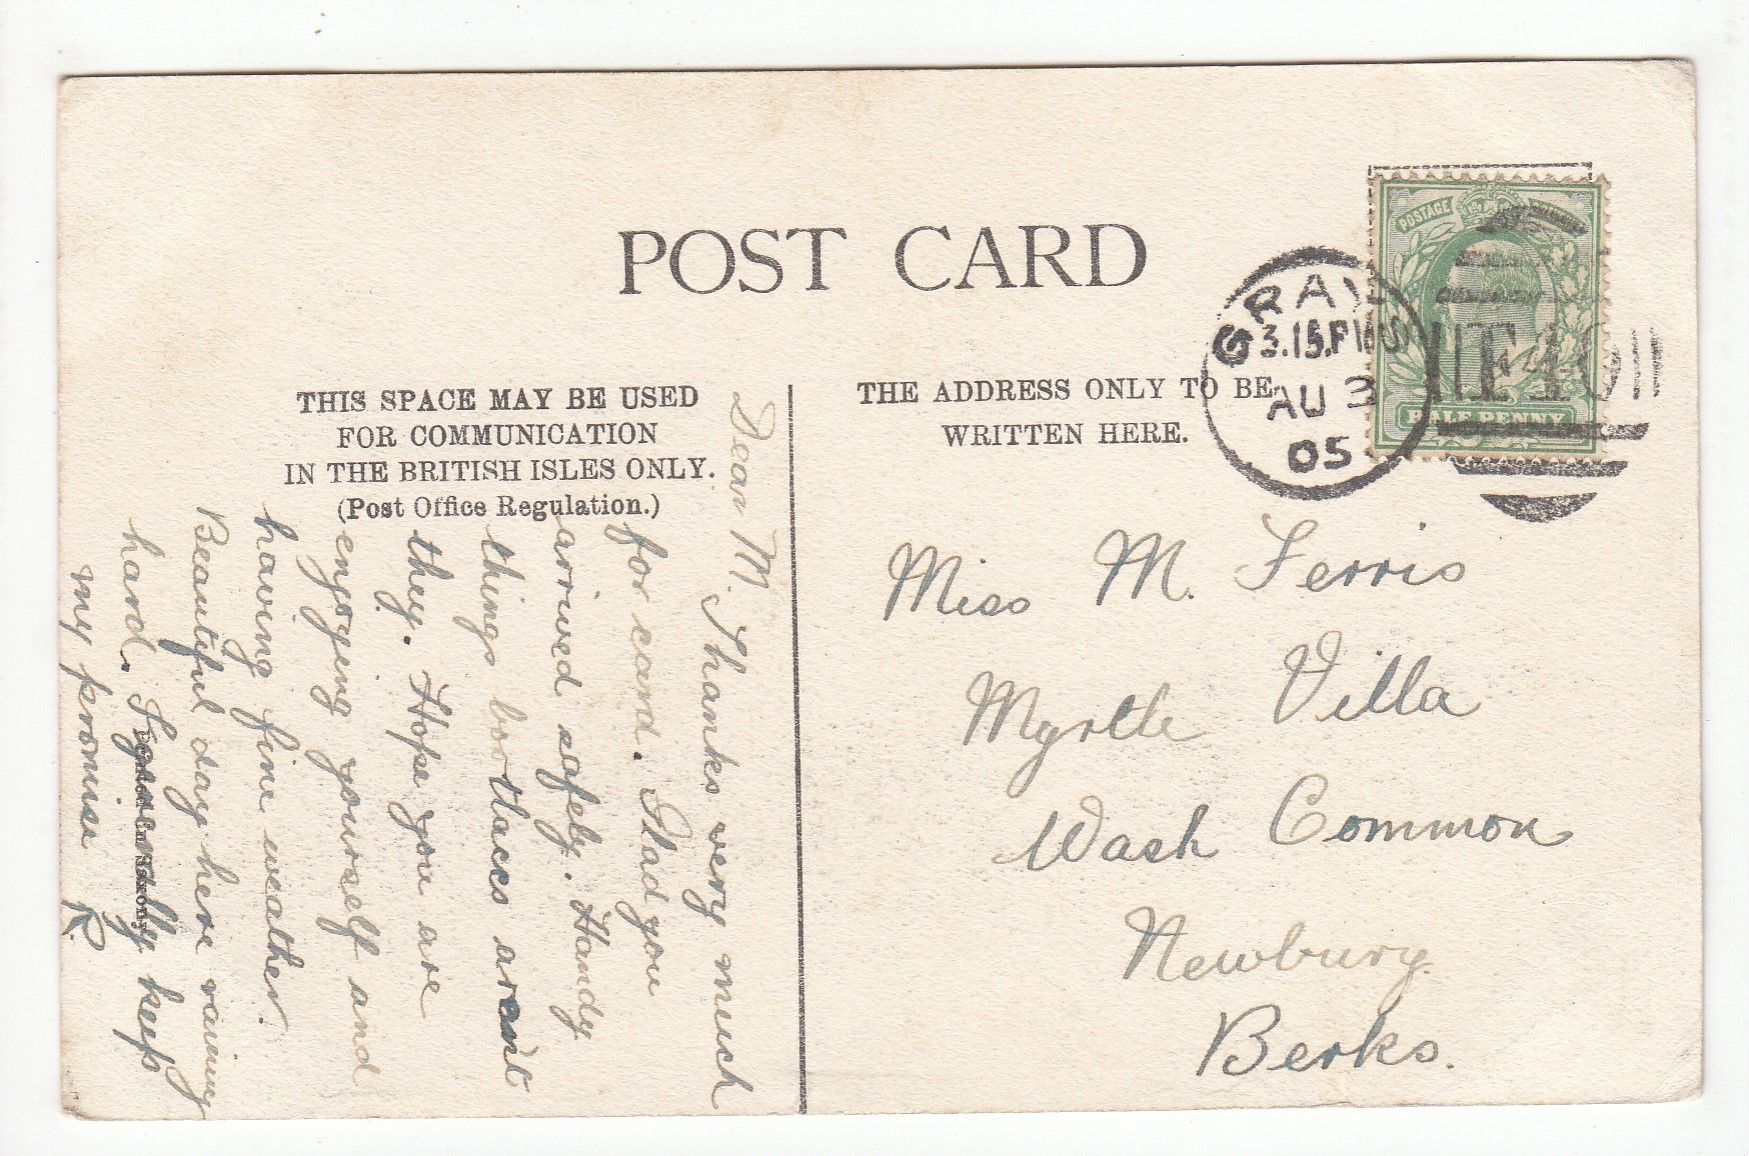 POST CARD
THIS SPACE MAY BE USED
FOR COMMUNICATION
IN THE BRITISH ISLES ONLY.
(Post Office Regulation.)
THE ADDRESS ONLY TO BE
WRITTEN HERE.
POSTAGE
HALF PENNY
GRAYS
3.15.PM
AU 3
05
Dear M. Thanks very much
for card. Glad you
arrived safely. Handy
things bootlaces arent
they. Hope you are
enjoying yourself and
having fine weather.
Beautiful day here raining
hard. I generally keep
my promise R.
Printed in Saxony
Miss M. Ferris
Myrtle Villa
Wash Common
Newbury.
Berks.